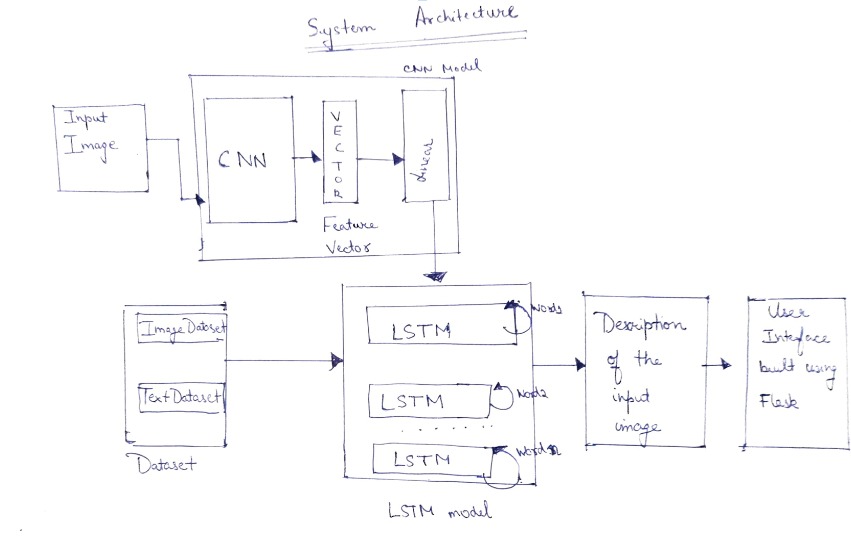 System Architecture
CNN Model
Input
Image
CNN
VECTOR
Linear
Feature
Vector
Image Dataset
Text Dataset
Dataset
LSTM
Word1
LSTM
Word2
. . . . . . .
LSTM
Word n
LSTM model
Description
of the
input
image
User
Interface
built using
Flask